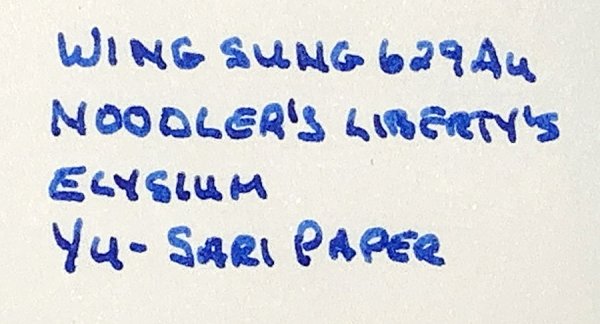 WING SUNG 629Au
NOODLER'S LIBERTY'S
ELYSIUM
YU-SARI PAPER